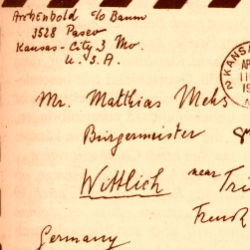 Archenbold c/o Baum
3528 Paseo
Kansas-City 3 Mo.
U. S. A.
KANSAS
AP
11
19
2
Mr. Matthias Mehs
Bürgermeister
Wittlich near Tri
French
Germany